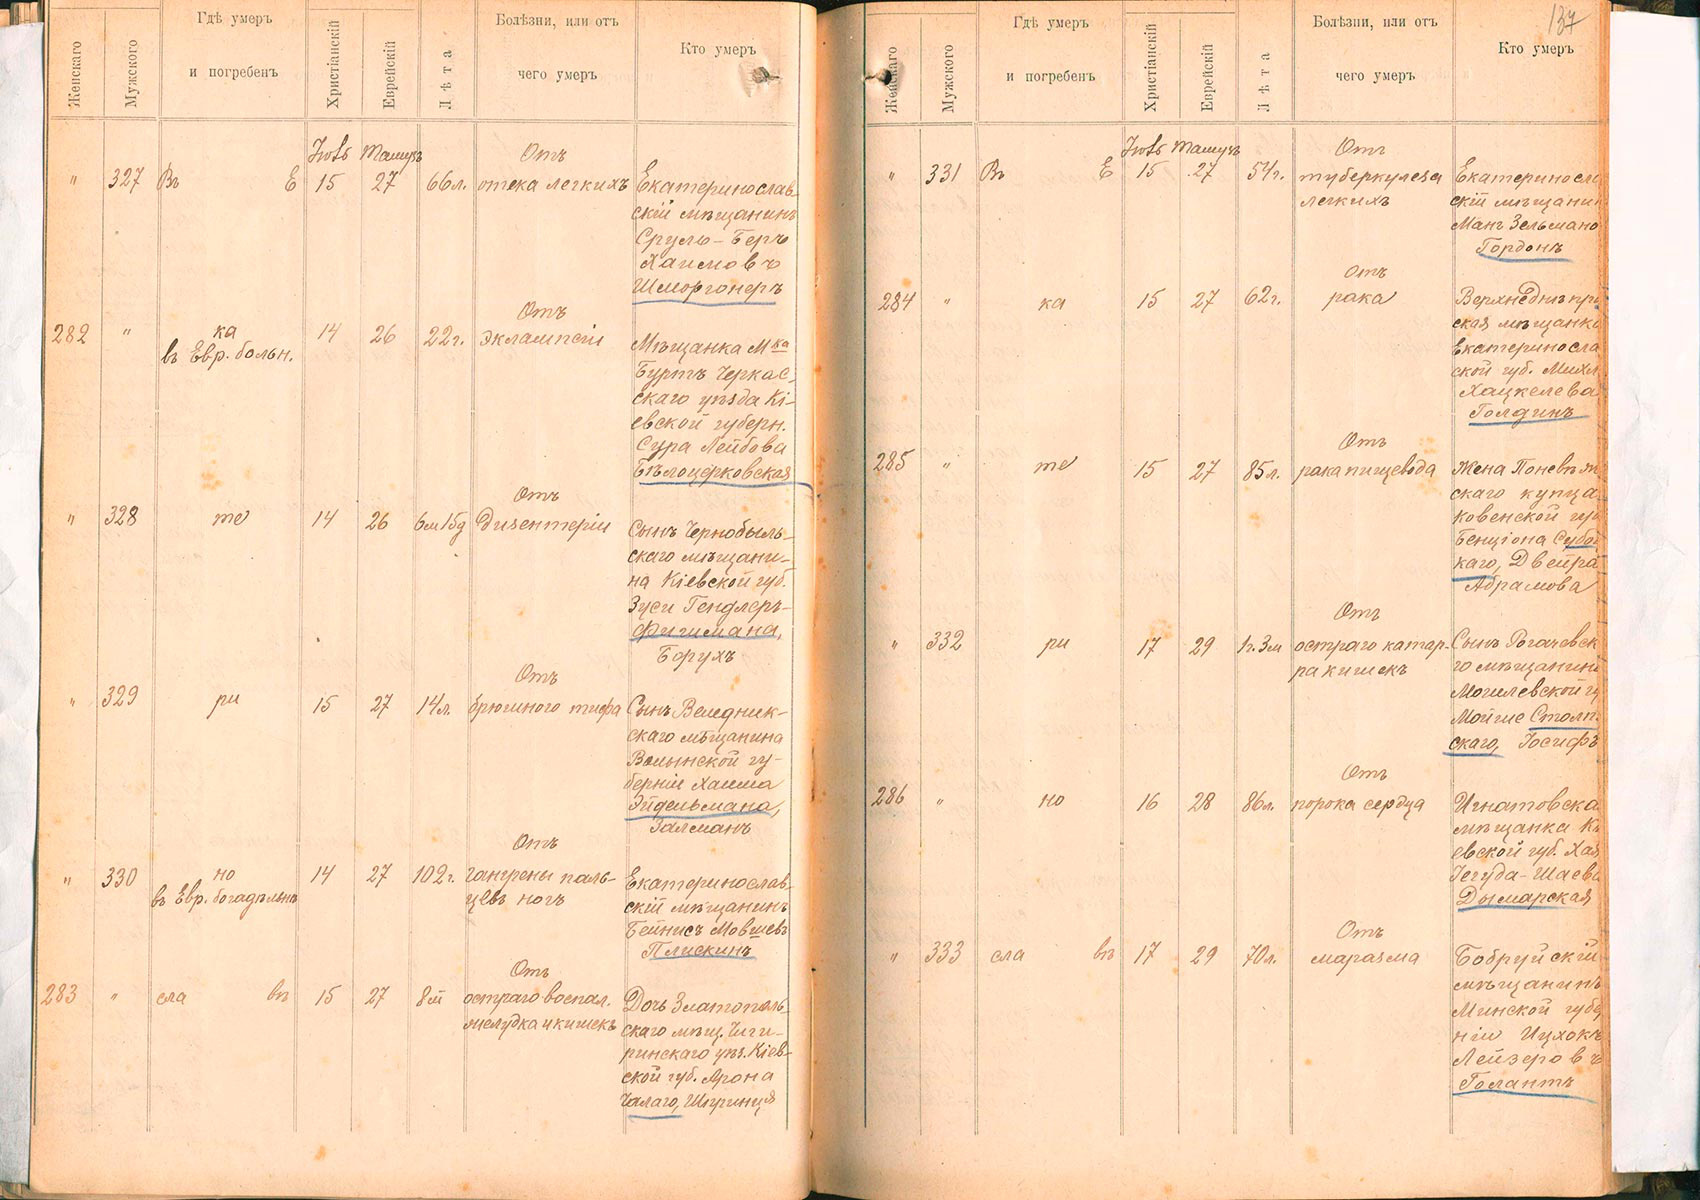 Женскаго
Мужского
Гдѣ умеръ
и погребенъ
Христіанскій
Еврейскій
Лѣта
Болѣзни, или отъ
чего умеръ
Кто умеръ
Іюль Тамузъ
" 327 Въ Е 15 27 66 л.
Отъ
отека легкихъ
Екатеринослав-
скій мѣщанинъ
Сруль-Беръ
Хаимовъ
Шморгонеръ
282 " ка
въ Евр. больн.
14 26 22 г.
Отъ
эклампсіи
Мѣщанка М-ка
Буртъ Черкас-
скаго уѣзда Кі-
евской губерн.
Сура Лейбова
Бѣлоцерковская
" 328 те 14 26 6м 15д
Отъ
дизентеріи
Сынъ Чернобыль-
скаго мѣщани-
на Кіевской губ.
Зуси Гендлеръ-
Фишмана,
Борухъ
" 329 ри 15 27 14 л.
Отъ
брюшного тифа
Сынъ Веледник-
скаго мѣщанина
Волынской гу-
берніи Хаима
Эйдельмана,
Залманъ
" 330 но
въ Евр. богадѣльнѣ
14 27 102 г.
Отъ
гангрены паль-
цевъ ногъ
Екатеринослав-
скій мѣщанинъ
Бейнисъ Мовшевъ
Плискинъ
283 " сла вѣ 15 27 8 м
Отъ
остраго воспал.
желудка и кишекъ
Дочь Златополь-
скаго мѣщ. Чиги-
ринскаго уѣз. Кіев-
ской губ. Арона
Чалаго, Шпринця
137
Женскаго
Мужского
Гдѣ умеръ
и погребенъ
Христіанскій
Еврейскій
Лѣта
Болѣзни, или отъ
чего умеръ
Кто умеръ
Іюль Тамузъ
" 331 Въ Е 15 27 54 г.
Отъ
туберкулеза
легкихъ
Екатериносла
скій мѣщанин
Манъ Зельмано
Гордонъ
284 " ка 15 27 62 г.
Отъ
рака
Верхнеднѣпро
ская мѣщанка
Екатериносла
ской губ. Михл
Хацкелева
Голдинъ
285 " те 15 27 85 л.
Отъ
рака пищевода
Жена Поневѣж
скаго купца
Ковенской гу
Бенціона Субоц
каго, Двейра
Абрамова
" 332 ри 17 29 1 г. 3 м
Отъ
остраго катар-
ра кишекъ
Сынъ Рогачевск
го мѣщанина
Могилевской гу
Мойше Столп
скаго, Іосифъ
286 " но 16 28 86 л.
Отъ
порока сердца
Игнатовска
мѣщанка Кі
евской губ. Хая
Іегуда-Шаева
Дымарская
" 333 сла вѣ 17 29 70 л.
Отъ
маразма
Бобруйскій
мѣщанинъ
Минской губе
ніи Ицхокъ
Лейзеровъ
Голантъ